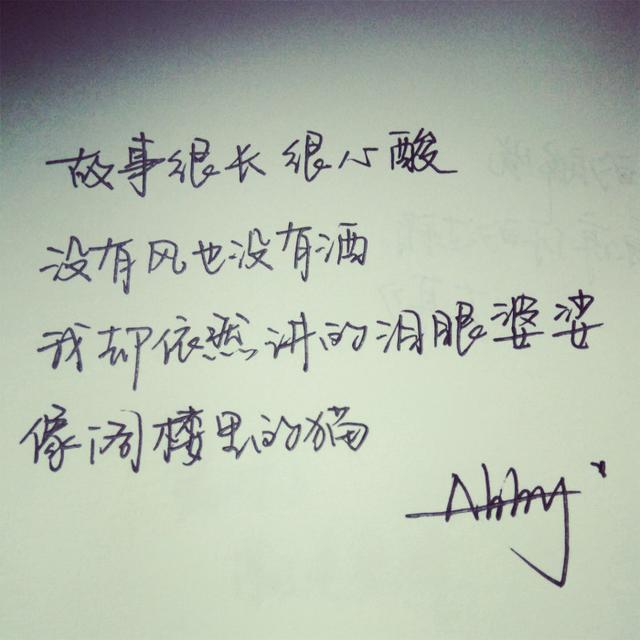 故事很长很心酸
没有风也没有酒
我却依然讲的泪眼婆娑
像阁楼里的猫